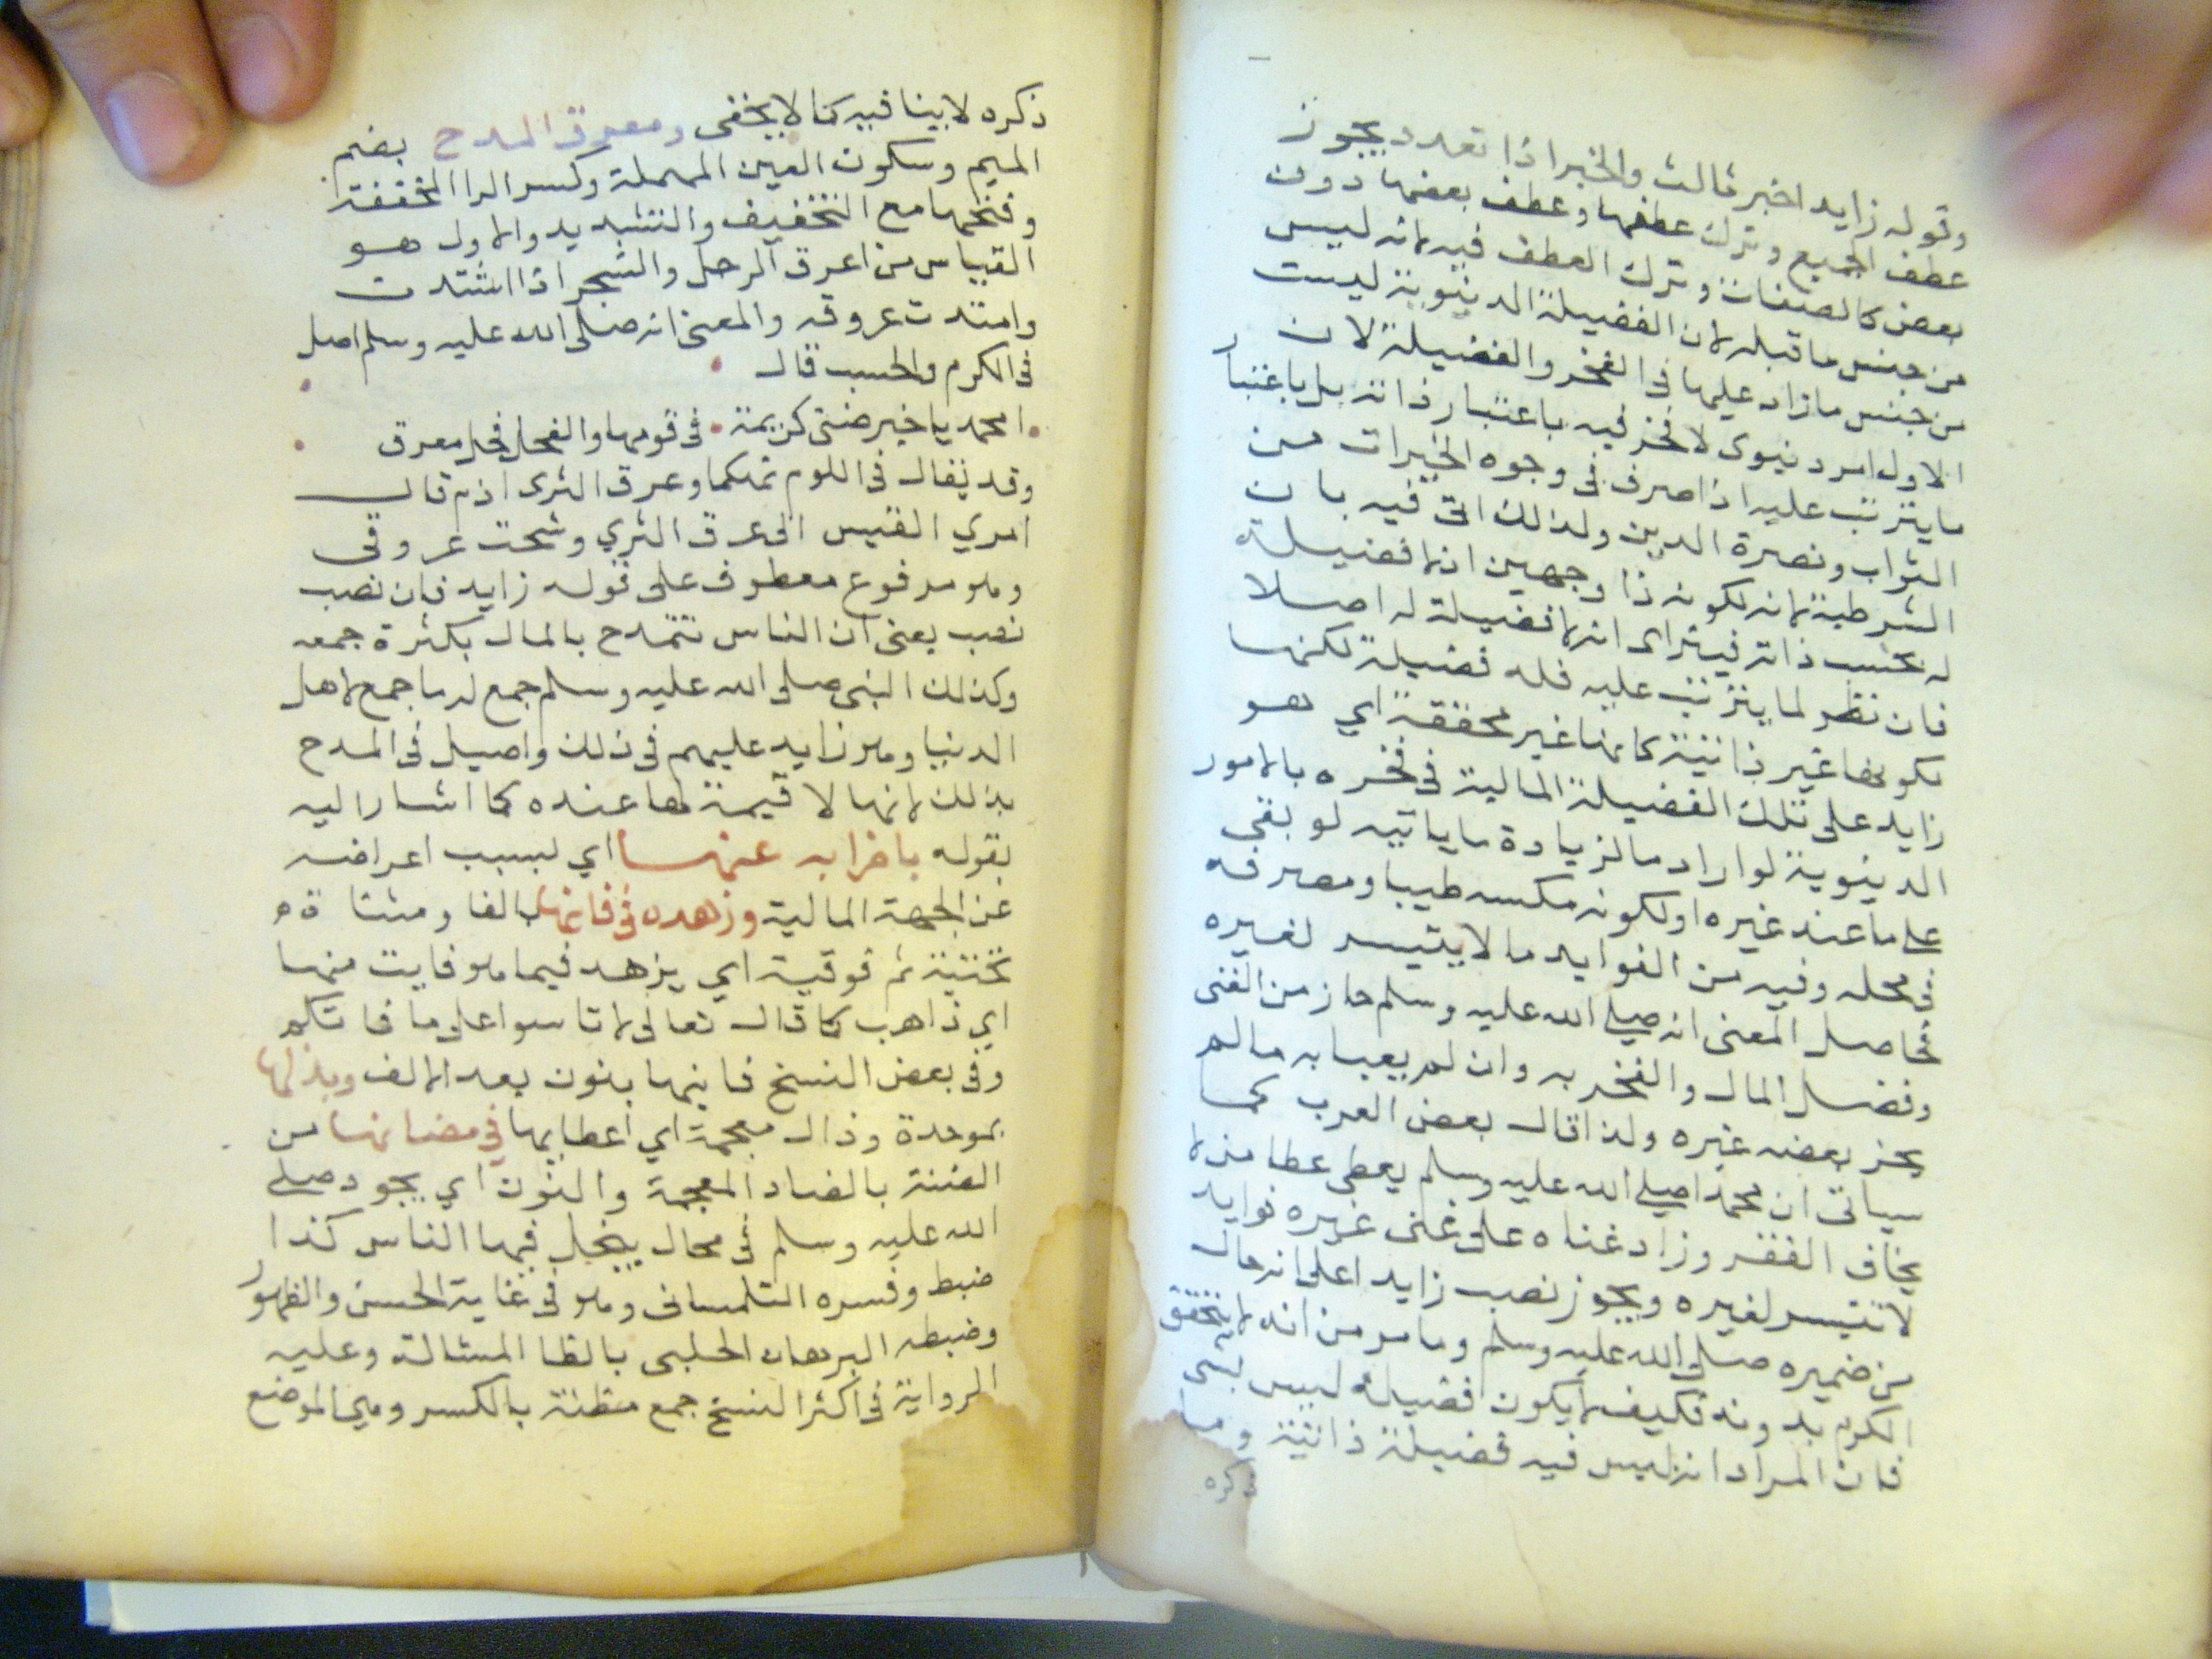 وقوله زايد اخبر ثالث والخبر اذا تعدد يجوز
عطف الجميع وترك عطفها وعطف بعضها دون
بعض كالصفات وترك العطف فيه لانه ليس
من جنس ما قبله لان الفضيلة الدنيوية ليست
من جنس ما زاد عليها فى الفخر والفضيلة لان
الاول امر دنيوى لا فخر فيه باعتبار ذاته بل باعتبار
ما يترتب عليه اذا صرف فى وجوه الخيرات من
الثواب ونصرة الدين ولذلك اتى فيه بان
الشرطية لانه لكونه ذا وجهين اذ لا فضيلة
له بحسب ذاته فيتراى انه لا فضيلة له اصلا
فان نظر لما يترتب عليه فله فضيلة لكنها
لكونها غير ذاتية كانها غير محققة اي هو
زايد على تلك الفضيلة المالية فى فخره بالامور
الدينوية لو اراد ما لزيادة ما ياتيه لو بقى
على ما عند غيره او لكونه مكسبه طيبا ومصرفه
فى محله وفيه من الفوايد ما لا يتيسر لغيره
فحاصل المعنى انه صلى الله عليه وسلم حاز من الغنى
وفضل المال والفخر به وان لم يعبا به ما لم
يحز بعضه غيره ولذا قال بعض العرب كما
سياتى ان محمدا صلى الله عليه وسلم يعطى عطا من لا
يخاف الفقر وزاد غناه على غنى غيره فوايد
لا تتيسر لغيره ويجوز نصب زايد اعلى انه حال
من ضميره صلى الله عليه وسلم وما مر من انه لا يتحقق
الكرم بدونه فكيف لا يكون فضيلة ليس بشى
فان المراد انه ليس فيه فضيلة ذاتية وما
ذكره
ذكره لا ينا فيه كما لا يخفى ومعرق المدح بضم
الميم وسكون العين المهملة وكسر الرا المخففة
وفتحها مع التخفيف والتشديد والاول هو
القياس من اعرق الرجل والشجر اذا اشتدت
وامتدت عروقه والمعنى انه صلى الله عليه وسلم اصل
فى الكرم والحسب قال
امحمد يا خير ضنئ كريمة فى قومها والفحل فحل معرق
وقد يقال فى اللوم تهكما وعرق الثرى اذم قال
امري القيس الى عرق الثري وشحت عروقى
وهو مرفوع معطوف على قوله زايد فان نصب
نصب يعنى ان الناس تتمدح بالمال بكثرة جمعه
وكذلك النبى صلى الله عليه وسلم جمع له ما جمع لاهل
الدنيا وهو زايد عليهم فى ذلك واصيل فى المدح
بذلك لانها لا قيمة لها عنده كما اشار اليه
بقوله باضرابه عنها اي بسبب اعراضه
عن الجهة المالية وزهده فى فايتها بالفا ومثناة
تحتية ثم فوقية اي يزهد فيما هو فايت منها
اي ذاهب كما قال تعالى لا تاسوا على ما فاتكم
وفى بعض النسخ فانيها بنون بعد الالف وبذلها
بموحدة وذال معجمة اي اعطايها في مضانها من
الضنة بالضاد المعجمة والنون اي يجود صلى
الله عليه وسلم فى محال يبخل فيها الناس كذا
ضبط وفسره التلمسانى وهو فى غاية الحسن والظهور
وضبطه البرهان الحلبى بالظا المشالة وعليه
الرواية فى اكثر النسخ جمع مظنة بالكسر وهى الموضع